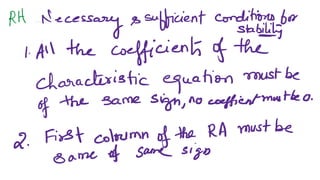 RH Necessary & sufficient conditions for
stability
1. All the coefficients of the
characteristic equation must be
of the same sign, no coefficient must be 0.
2. First coloumn of the RA must be
same of same sign